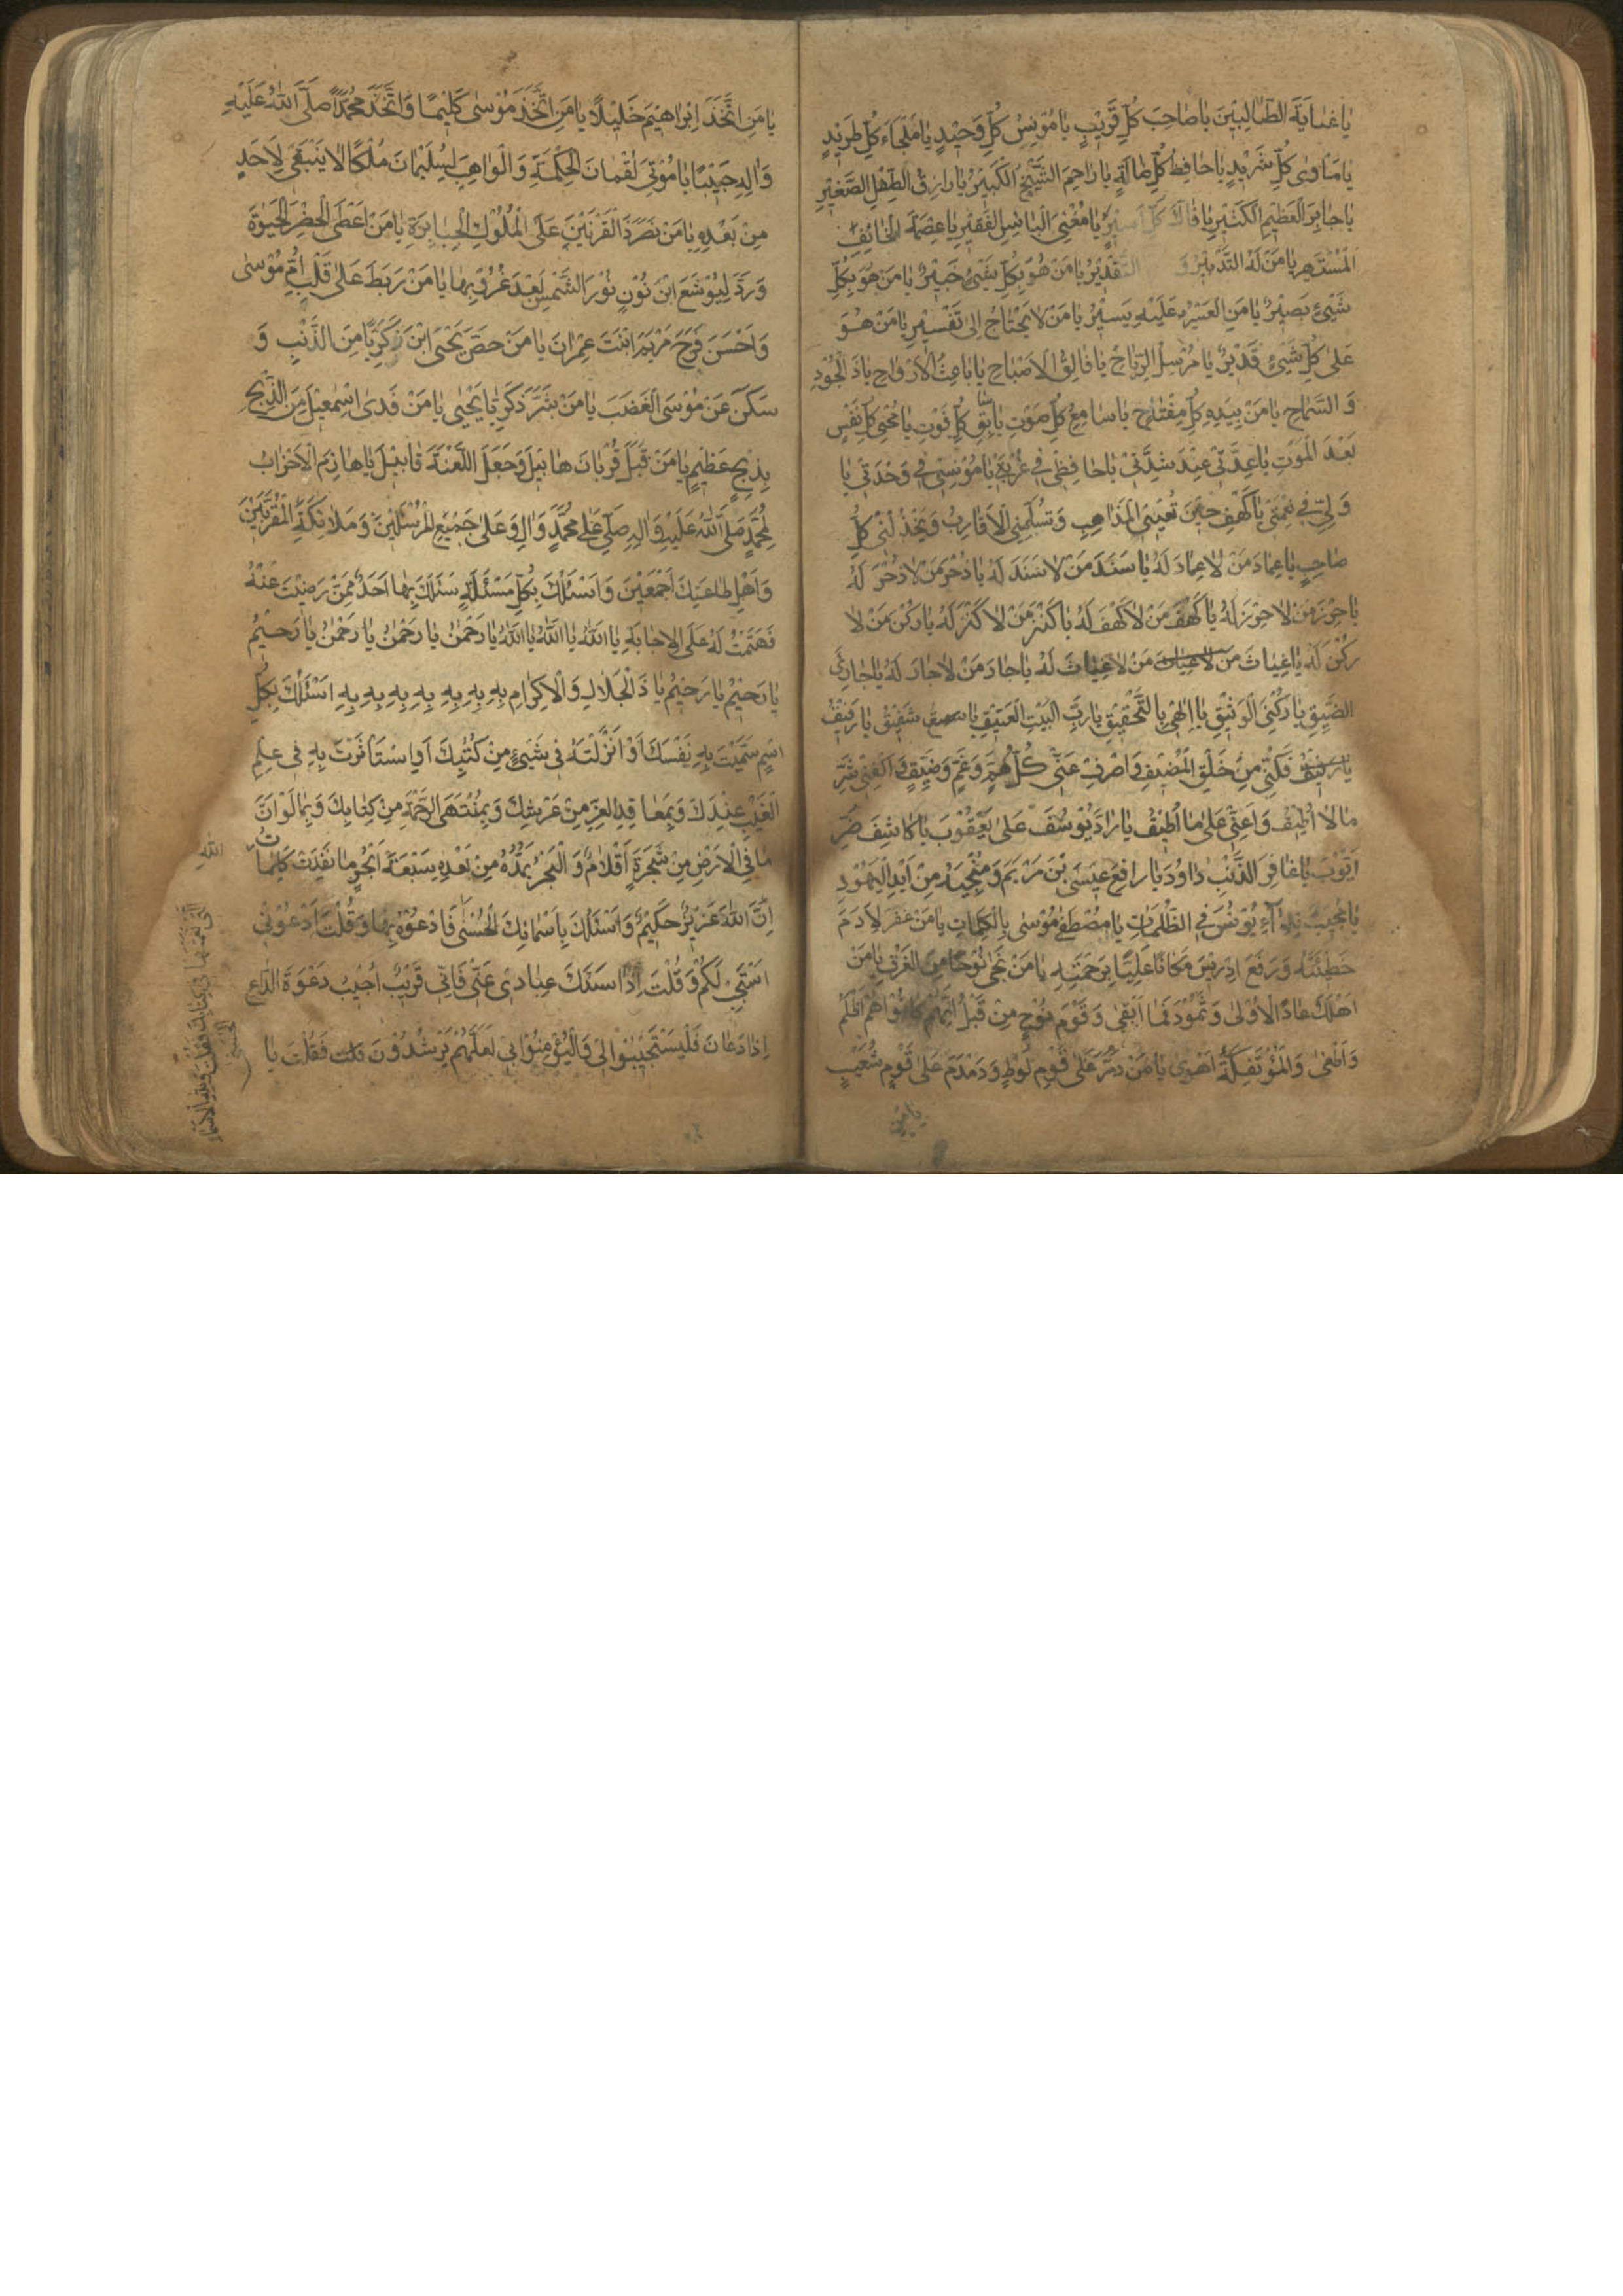 يَا غَايَةَ الطَّالِبِينَ يَا صَاحِبَ كُلِّ قَرِيْبٍ يَا مُوْنِسَ كُلِّ وَحْيدٍ يَا مَلْجَاءَ كُلِّ طَرِيْدٍ
يَا مَاوٰى كُلِّ شَرِيْدٍ يَا حَافِظَ كُلِّ ضَالَّةٍ يَا رَاحِمَ الشَّيْخِ الْكَبِيْرِ يَا رَازِقَ الطِّفْلِ الصَّغِيْرِ
يَا جَابِرَ الْعَظْيمِ الْكَسْيرِ يَا فَاكَّ كُلِّ اَسِيْرٍ يَا مُغْنِىَ الْبَائِسِ الْفَقِيْرِ يَا عِصْمَةَ الْخَائِفِ
الْمُسْتَجِيرِ يَا مَنْ لَهُ التَّدْبِيْرُ وَ التَّقْدِيْرُ يَا مَنْ هُوَ بِكُلِّ شَيْئٍ خَبِيْرٌ يَا مَنْ هُوَ بِكُلِّ
شَيْئٍ بَصِيْرٌ يَا مَنِ الْعَسْيُر عَلَيْهِ يَسِيْرٌ يَا مَنْ لَا يَحْتَاجُ اِلٰى تَفْسِيْرٍ يَا مَنْ هُوَ
عَلٰى كُلِّ شَيْئٍ قَدْيرٌ يَا مُرْسِلَ الرِّيَاحِ يَا فَالِقَ الْاَصْبَاحِ يَا بَاعِثَ الْاَرْوَاحِ يَا ذَا الْجُوْدِ
وَ السَّمَاحِ يَا مَنْ بِيَدِهِ كُلُّ مِفْتَاحٍ يَا سَامِعَ كُلِّ صَوْتٍ يَا سَابِقَ كُلِّ فَوْتٍ يَا مُحْيِىَ كُلِّ نَفْسٍ
بَعْدَ الْمَوْتِ يَا عِدَّتِىْ عِنْدَ شِدَّتِىْ يَا حَافِظِى فِىْ غُرْبَتِىْ يَا مُوْنِسِىْ فِىْ وَحْدَتِىْ يَا
وَلِيِّى فِىْ نِعْمَتِىْ يَا كَهْفِى حِيْنَ تُعْيِينِى الْمَذَاهِبِ وَ تُسَلِّمُنِى الْاَقَارِبُ وَ يَخْذُلُنِىْ كُلُّ
صَاحِبٍ يَا عِمَادَ مَنْ لَا عِمَادَ لَهُ يَا سَنَدَ مَنْ لَا سَنَدَ لَهُ يَا ذُخْرَ مَنْ لَا ذُخْرَ لَهُ
يَا حِرْزَ مَنْ لَا حِرْزَ لَهُ يَا كَهْفَ مَنْ لَا كَهْفَ لَهُ يَا كَنْزَ مَنْ لَا كَنْزَ لَهُ يَا رُكْنَ مَنْ لَا
رُكْنَ لَهُ يَا غِيَاثَ مَنْ لَا غِيَاثَ لَهُ يَا جَارَ مَنْ لَا جَارَ لَهُ يَا جَارِىَ
الضَّيِّقِ يَا رُكْنِىَ الْوَثِيْقِ يَا اِلٰهِى بِالتَّحْقِيْقِ يَا رَبَّ الْبَيْتِ الْعَتِيْقِ يَا شَفِيْقُ يَا رَفِيْقُ
فُكَّنِىْ مِنْ خَلَقِ الْمَضْيقِ وَ اصْرِفْ عَنِّىْ كُلَّ هَمٍّ وَ غَمٍّ وَ ضِيْقٍ وَ اكْفِنِىْ شَرَّ
مَا لَا اُطِيْقُ وَ اَعِنِّى عَلٰى مَا اُطِيْقُ يَا رَادَّ يُوْسُفَ عَلٰى يَعْقُوْبَ يَا كَاشِفَ ضُرِّ
اَيُّوْبَ يَا غَافِرَ الذَّنْبِ دَاوٗدَ يَا رَافِعَ عِيْسَى بْنَ مَرْيَمَ وَ مُنْجِيَهُ مِنْ اَيْدِ الْيَهُوْدِ
يَا مُجِيْبَ نِدَآءِ يُوْنُسَ فِى الظُّلُمَاتِ يَا مُصْطَفِىْ مُوْسٰى بِالْكَلِمَاتِ يَا مَنْ غَفَرَ لِاٰدَمَ
خَطِيْئَتَهُ وَ رَفَعَ اِدْرِيْسَ مَكَانًا عَلِيًّا بِرَحْمَتِهِ يَا مَنْ نَجّٰى نُوْحًا مِنَ الْغَرَقِ يَا مَنْ
اَهْلَكَ عَادًا الْاُوْلٰى وَ ثَمُوْدَ فَمَا اَبْقٰى وَ قَوْمَ نُوْحٍ مِنْ قَبْلُ اِنَّهُمْ كَانُوْا هُمْ اَظْلَمَ
وَ اَطْغٰى وَ الْمُؤْتَفِكَةَ اَهْوٰى يَا مَنْ دَمَّرَ عَلٰى قَوْمِ لُوْطٍ وَ دَمْدَمَ عَلٰى قَوْمِ شُعَيْبٍ
يَا مَنِ
يَا مَنِ اتَّخَذَ اِبْرَاهِيْمَ خَلِيْلًا يَا مَنِ اتَّخَذَ مُوْسٰى كَلِيْمًا وَ اتَّخَذَ مُحَمَّدًا صَلَّى اللّٰهُ عَلَيْهِ
وَ اٰلِهِ حَبِيْبًا يَا مُؤْتِىَ لُقْمَانَ الْحِكْمَةَ وَ الْوَاهِبَ لِسُلَيْمَانَ مُلْكًا لَا يَنْبَغِىْ لِاَحَدٍ
مِنْ بَعْدِهِ يَا مَنْ نَصَرَ ذَا الْقَرْنَيْنِ عَلَى الْمُلُوْكِ الْجَبَابِرَةِ يَا مَنْ اَعْطَى الْخِضْرَ الْحَيٰوةَ
وَ رَدَّ لِيُوْشَعَ ابْنَ نُوْنٍ نُوْرَ الشَّمْسِ بَعْدَ غُرُوْبِهَا يَا مَنْ رَبَطَ عَلٰى قَلْبِ اُمِّ مُوْسٰى
وَ اَحْسَنَ فَرْجَ مَرْيَمَ ابْنَتَ عِمْرَانَ يَا مَنْ حَصَّنَ يَحْيَى ابْنَ زَكَرِيَّا مِنَ الذَّنْبِ وَ
سَكَّنَ عَنْ مُوْسَى الْغَضَبَ يَا مَنْ بَشَّرَ زَكَرِيَّا بِيَحْيٰى يَا مَنْ فَدٰى اِسْمٰعِيْلَ مِنَ الذَّبْحِ
بِذِبْحٍ عَظِيْمٍ يَا مَنْ قَبِلَ قُرْبَانَ هَابِيْلَ وَ جَعَلَ اللَّعْنَةَ قَابِيْلَ يَا هَازِمَ الْاَحْزَابِ
لِمُحَمَّدٍ صَلَّى اللّٰهُ عَلَيْهِ وَ اٰلِهِ صَلِّ عَلٰى مُحَمَّدٍ وَ اٰلِ وَ عَلٰى جَمِيْعِ الْمُرْسَلِيْنَ وَ مَلَائِكَةِ الْمُقَرَّبِيْنَ
وَ اَهْلِ طَاعَتِكَ اَجْمَعِيْنَ وَ اَسْئَلُكَ بِكُلِّ مَسْئَلَةٍ سَئَلَكَ بِهَا اَحَدٌ مِمَّنْ رَضِيْتَ عَنْهُ
فَحَتَمْتَ لَهُ عَلَى الْاِجَابَةِ يَا اَللّٰهُ يَا اَللّٰهُ يَا اَللّٰهُ يَا رَحْمٰنُ يَا رَحْمٰنُ يَا رَحْمٰنُ يَا رَحِيْمُ
يَا رَحِيْمُ يَا رَحِيْمُ يَا ذَا الْجَلَالِ وَ الْاِكْرَامِ بِهِ بِهِ بِهِ بِهِ بِهِ بِهِ بِهِ اَسْئَلُكَ بِكُلِّ
اسْمٍ سَمَّيْتَ بِهِ نَفْسَكَ اَوْ اَنْزَلْتَهُ فِىْ شَيْئٍ مِنْ كُتُبِكَ اَوِ اسْتَاْثَرْتَ بِهِ فِى عِلْمِ
الْغَيْبِ عِنْدَكَ وَ بِمَعَاقِدِ الْعِزِّ مِنْ عَرْشِكَ وَ بِمُنْتَهَى الرَّحْمَةِ مِنْ كِتَابِكَ وَ بِمَا لَوْ اَنَّ
مَا فِى الْاَرْضِ مِنْ شَجَرَةٍ اَقْلَامٌ وَ الْبَحْرُ يَمُدُّهُ مِنْ بَعْدِهِ سَبْعَةُ اَبْحُرٍ مَا نَفِدَتْ كَلِمَاتُ
اللّٰهِ
اِنَّ اللّٰهَ عَزِيْزٌ حَكِيْمٌ وَ اَسْئَلُكَ بِاَسْمَائِكَ الْحُسْنٰى فَادْعُوْهُ بِهَا وَ قُلْتَ اَدْعُوْنِىْ
اَسْتَجِبْ لَكُمْ وَ قُلْتَ اِذَا سَئَلَكَ عِبَادِىْ عَنِّىْ فَاِنِّى قَرِيْبٌ اُجِيْبُ دَعْوَةَ الدَّاعِ
اِذَا دَعَانِ فَلْيَسْتَجِيْبُوْا لِىْ وَ الْيُؤْمِنُوْا بِىْ لَعَلَّهُمْ يَرْشُدُوْنَ وَ قُلْتَ يَا
الَّتِى نَعَتَّهَا فِى كِتَابِكَ فَقُلْتَ وَ لِلّٰهِ الْاَسْمَاءُ
الْحُسْنٰى